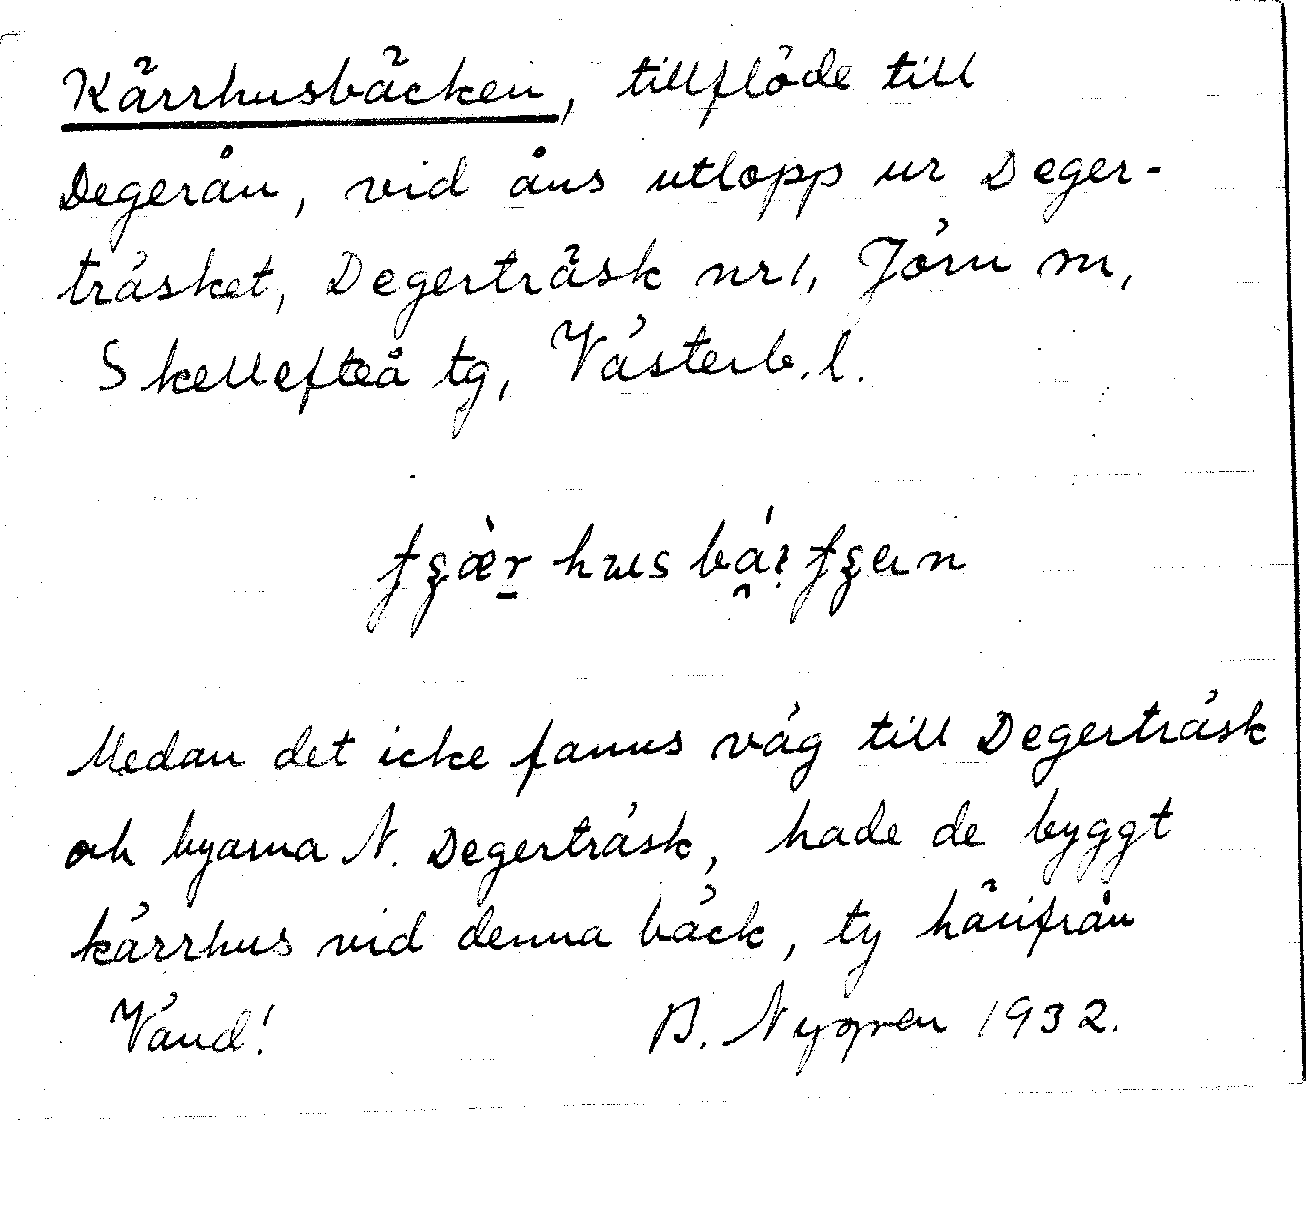 Kärrhusbäcken, tillflöde till
Degerån, vid åns utlopp ur Deger-
träsket, Degerträsk nr 1, Jörn sn,
Skellefteå tg, Västerb. l.
Medan det icke fanns väg till Degerträsk
och byarna N. Degerträsk, hade de byggt
kärrhus vid denna bäck, ty härifrån
Vänd! B. Nygren 1932.